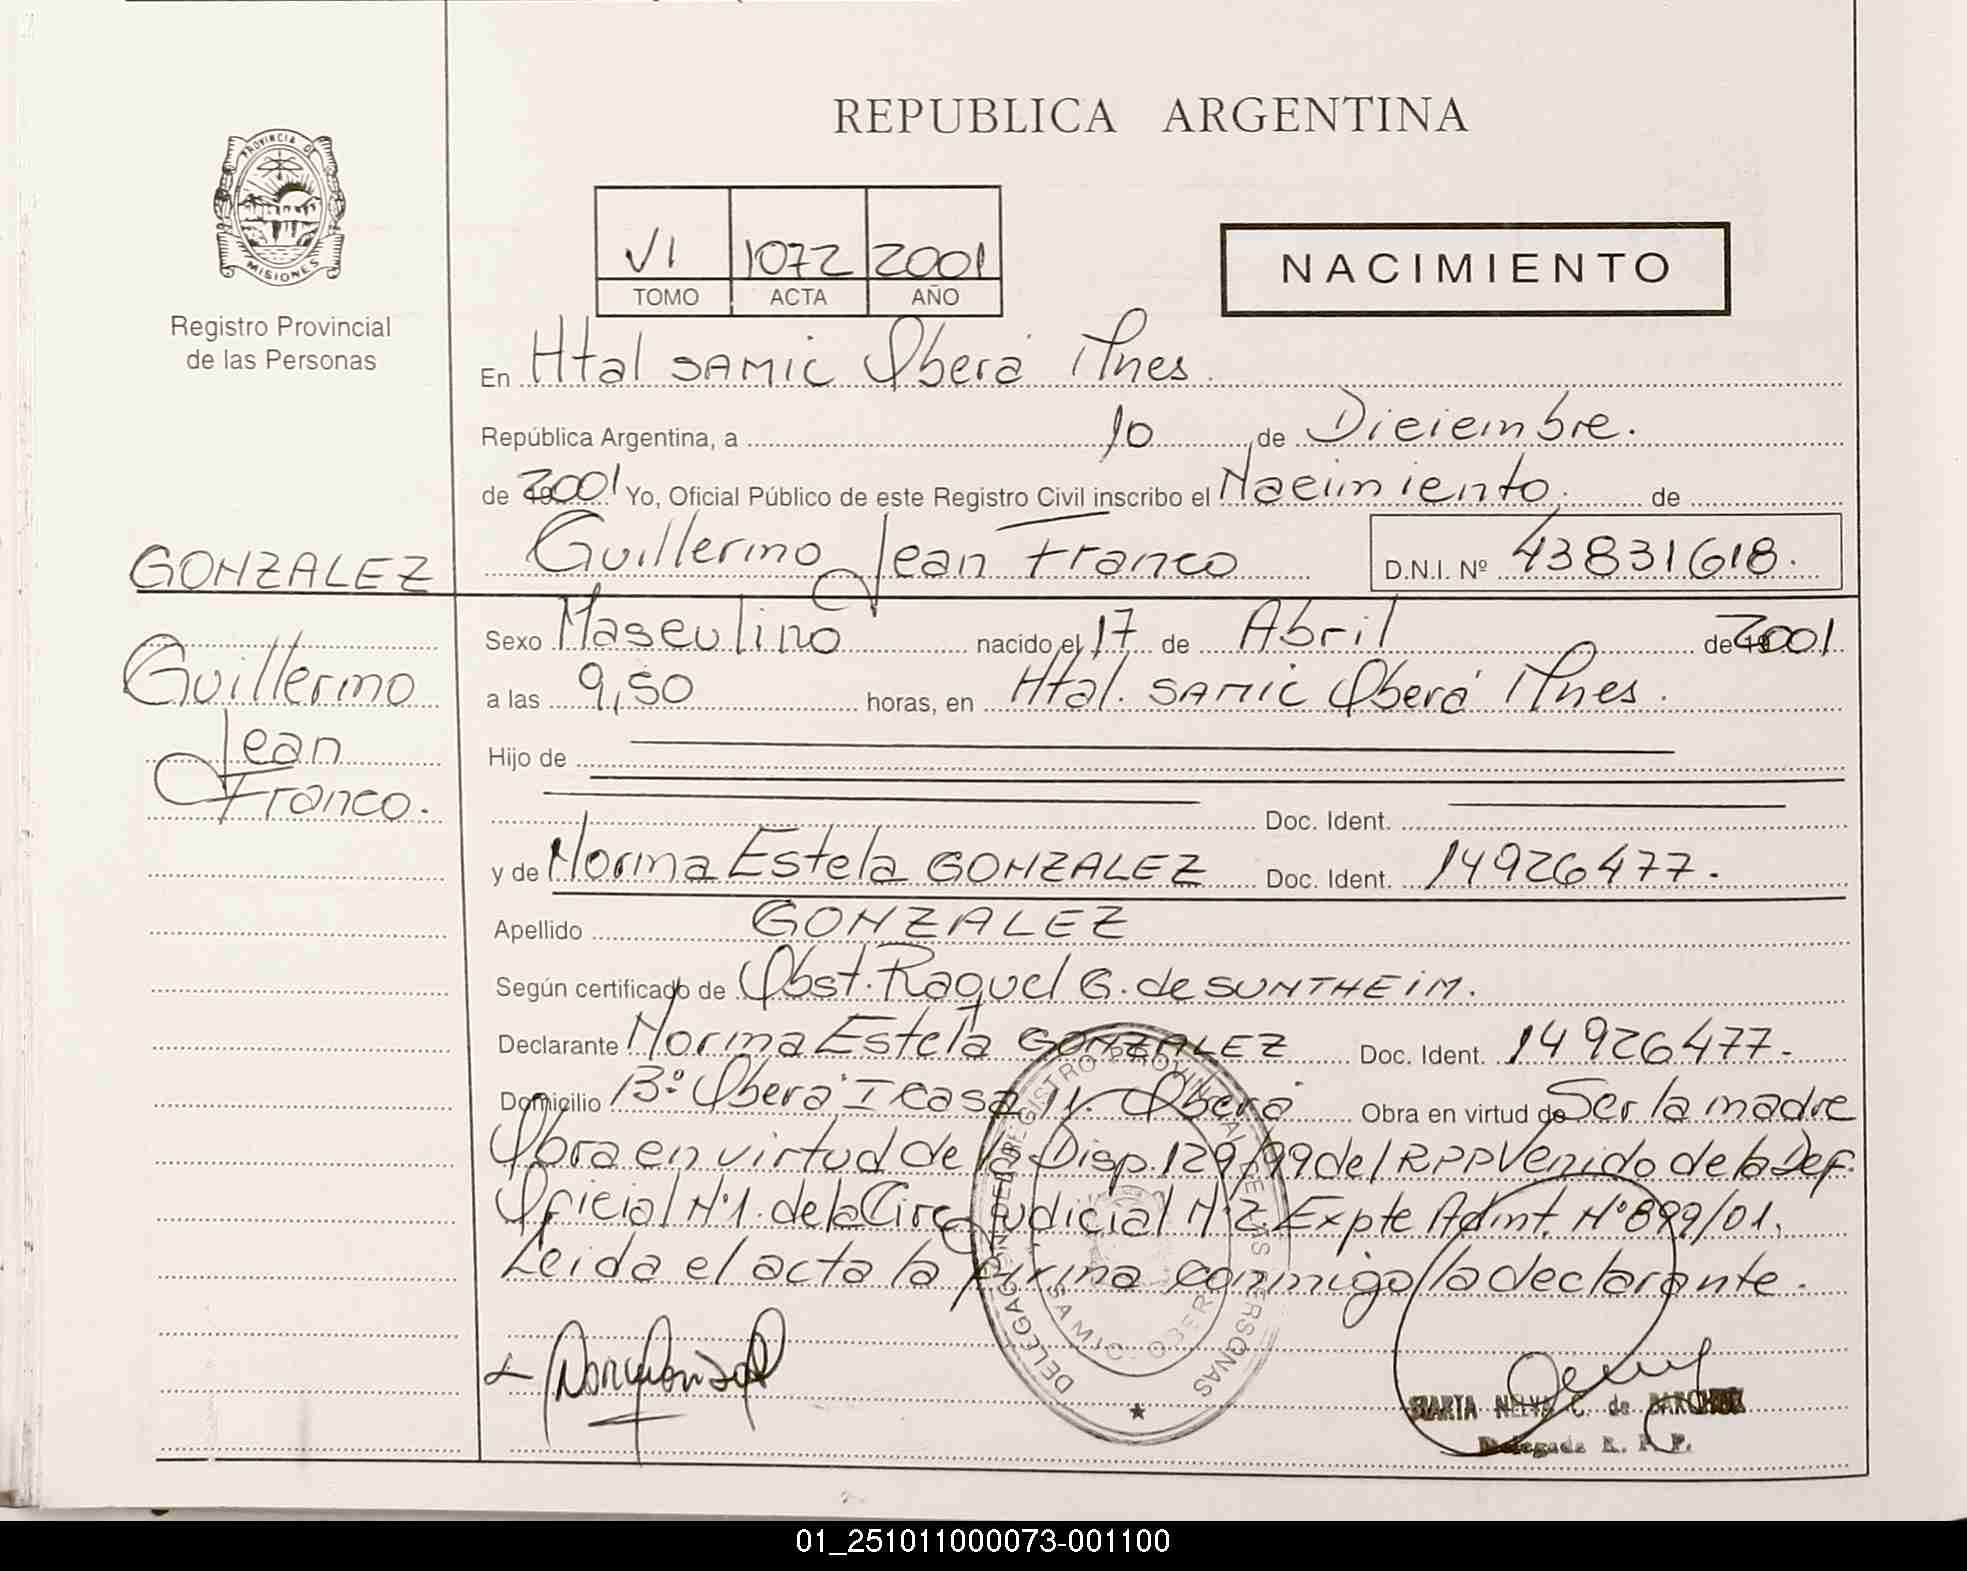 PROVINCIA DE
MISIONES
Registro Provincial
de las Personas
REPUBLICA ARGENTINA
VI 1072 2001
TOMO ACTA AÑO
NACIMIENTO
En Htal SAMIC Oberá Mnes.
República Argentina, a 10 de Diciembre.
de 2001 Yo, Oficial Público de este Registro Civil inscribo el Nacimiento. de
GONZALEZ
Guillermo Jean Franco D.N.I. Nº 43831618.
Guillermo
Jean
Franco.
Sexo Masculino nacido el 17 de Abril de 2001
a las 9,50 horas, en Htal. SAMIC Oberá Mnes.
Hijo de
Doc. Ident.
y de Norma Estela GONZALEZ Doc. Ident. 14926477.
Apellido GONZALEZ
Según certificado de Obst. Raquel G. de SUNTHEIM.
Declarante Norma Estela GONZALEZ Doc. Ident. 14926477.
Domicilio Bº Oberá I casa Oberá Obra en virtud de Ser la madre
Obra en virtud de la Disp. 129/99 del RPP Venido de la Def.
Oficial Nº1. de la Circ Judicial Nº2. Expte Admt. Nº 899/01.
Leida el acta la firma conmigo la declarante.
DELEGACION DEL REGISTRO PROVINCIAL DE LAS PERSONAS
SAMIC - OBERA
MARTA NELVA C. de
Delegada R. P. P.
01_251011000073-001100